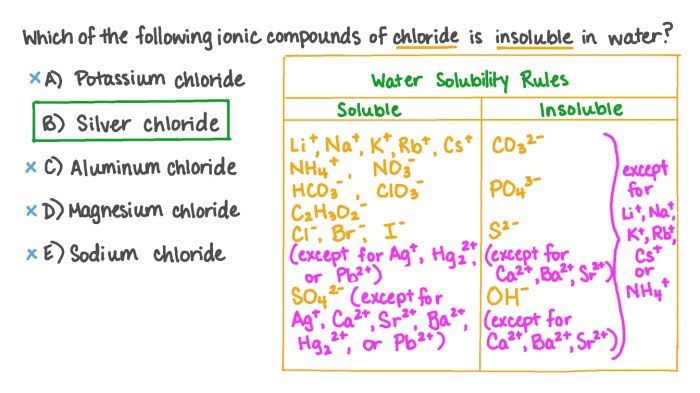 Which of the following ionic compounds of chloride is insoluble in water?
× A) Potassium chloride
B) Silver chloride
× C) Aluminum chloride
× D) Magnesium chloride
× E) Sodium chloride
Water Solubility Rules
Soluble
Li⁺, Na⁺, K⁺, Rb⁺, Cs⁺
NH₄⁺, NO₃⁻
HCO₃⁻, ClO₃⁻
C₂H₃O₂⁻
Cl⁻, Br⁻, I⁻
(except for Ag⁺, Hg₂²⁺,
or Pb²⁺)
SO₄²⁻ (except for
Ag⁺, Ca²⁺, Sr²⁺, Ba²⁺,
Hg₂²⁺, or Pb²⁺)
Insoluble
CO₃²⁻
PO₄³⁻
S²⁻
(except for
Ca²⁺, Ba²⁺, Sr²⁺)
OH⁻
(except for
Ca²⁺, Ba²⁺, Sr²⁺)
except
for
Li⁺, Na⁺,
K⁺, Rb⁺,
Cs⁺
or
NH₄⁺